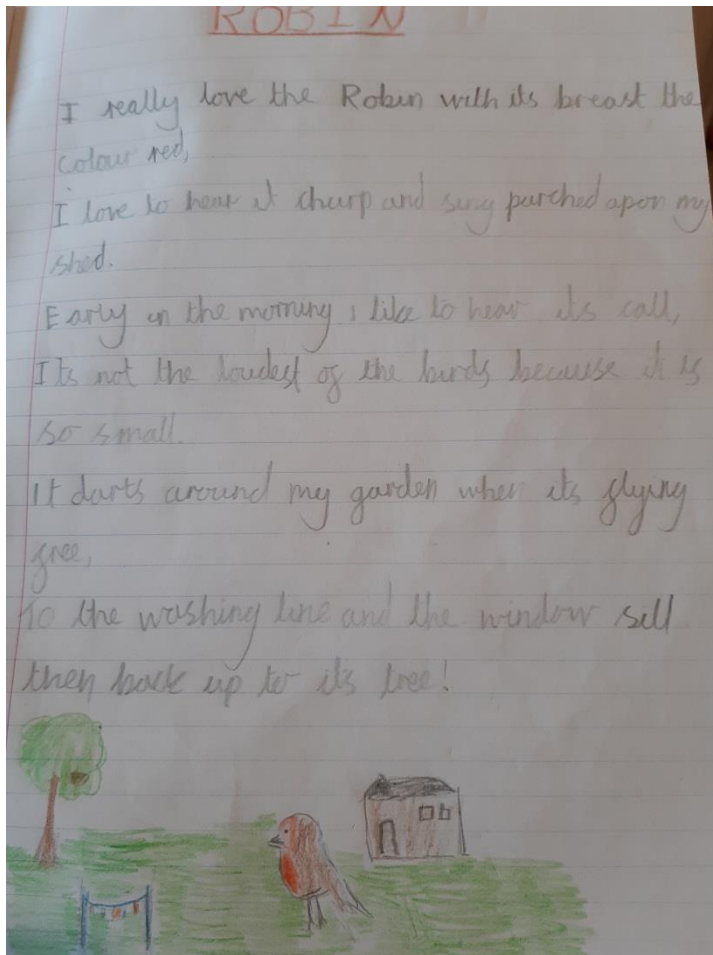 ROBIN
I really love the Robin with its breast the
colour red,
I love to hear it churp and sing purched apon my
shed.
Early in the morning i like to hear its call,
Its not the loudest of the birds because it is
so small.
It darts around my garden when its flying
free,
To the washing line and the window sill
then back up to its tree!